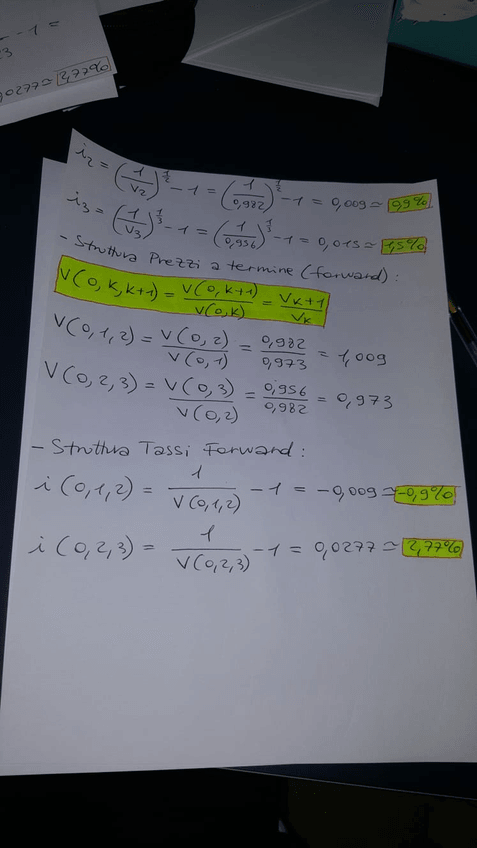 - 1 =
0,0277 ≃ 2,77%
i₂ = (1/V₂)^(1/2) - 1 = (1/0,982)^(1/2) - 1 = 0,009 ≃ 0,9%
i₃ = (1/V₃)^(1/3) - 1 = (1/0,956)^(1/3) - 1 = 0,015 ≃ 1,5%
- Struttura Prezzi a termine (forward):
V(0,K,K+1) = V(0,K+1)/V(0,K) = VK+1/VK
V(0,1,2) = V(0,2)/V(0,1) = 0,982/0,973 = 1,009
V(0,2,3) = V(0,3)/V(0,2) = 0,956/0,982 = 0,973
- Struttura Tassi Forward:
i(0,1,2) = 1/V(0,1,2) - 1 = -0,009 ≃ -0,9%
i(0,2,3) = 1/V(0,2,3) - 1 = 0,0277 ≃ 2,77%